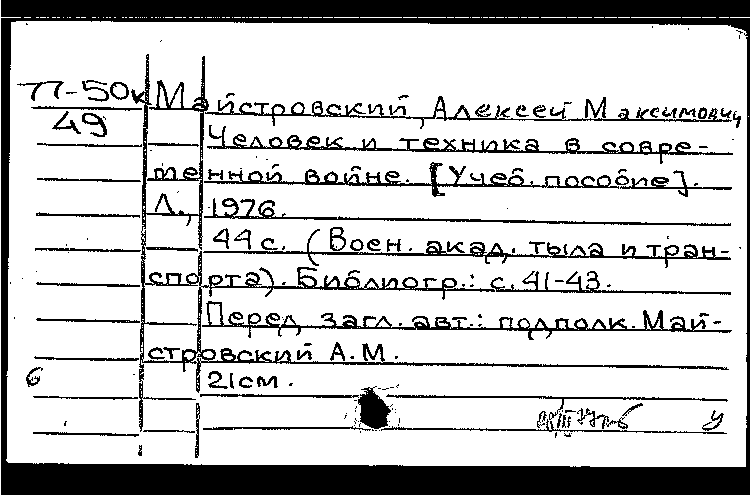 77-50к Майстровский, Алексей Максимович
49 Человек и техника в совре-
менной войне. [Учеб. пособие].
Л., 1976.
44 с. (Воен. акад. тыла и тран-
спорта). Библиогр.: с. 41-43.
Перед загл. авт.: подполк. Май-
стровский А.М.
б 21 см.
у